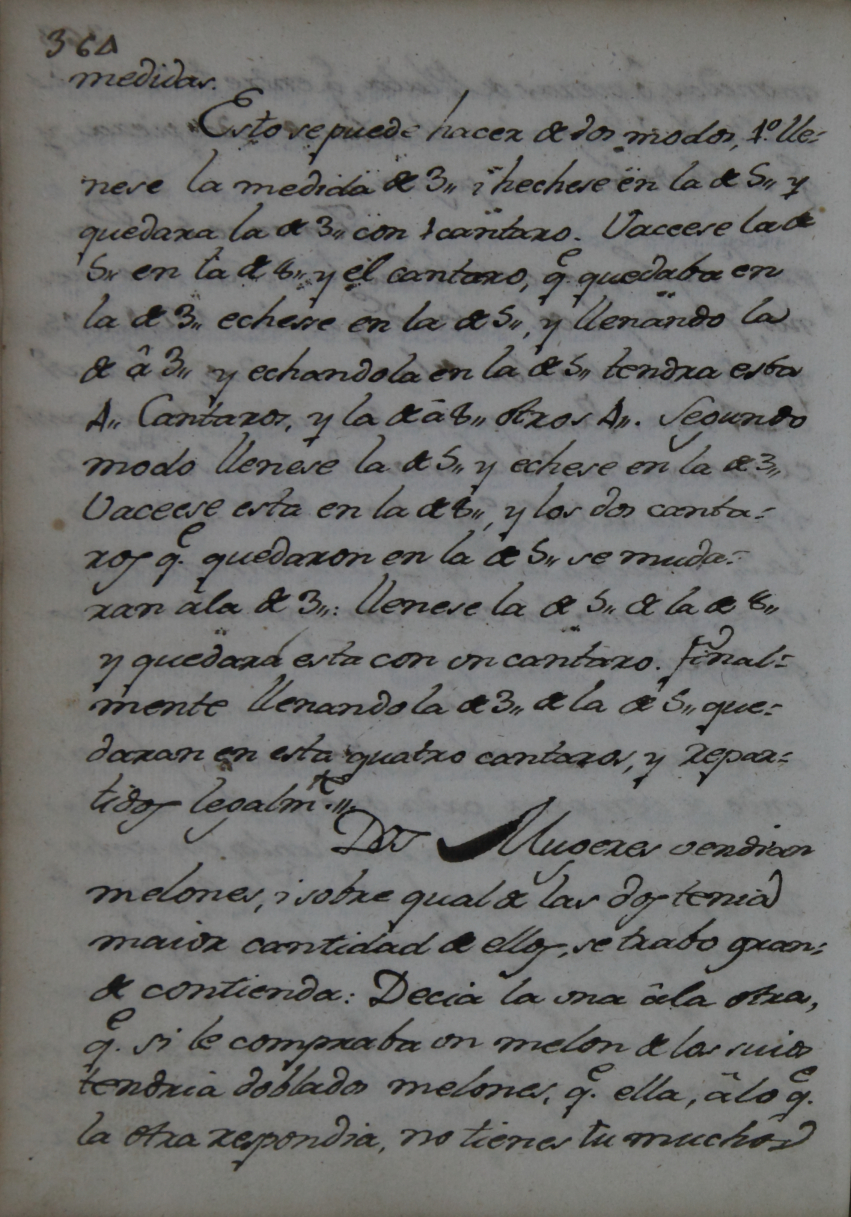 364
medidas.
Esto se puede hacer de dos modos, 1.º lle-
nese la medida de 3,, i hechese en la de 5,, y
quedara la de 3,, con 1 cantaro. Vaceese la de
5,, en la de 8,, y el cantaro, q.e quedaba en
la de 3,, echese en la de 5,, y llenando la
de â 3,, y echandola en la de 5,, tendra esta
4,, Cantaros, y la de â 8,, otros 4,,. Segundo
modo llenese la de 5,, y echese en la de 3,,
Vaceese esta en la de 8,,, y los dos canta-
ros q.e quedaron en la de 5,, se muda-
ran âla de 3,,: llenese la de 5,, de la de 8,,
y quedará esta con un cantaro. final-
mente llenando la de 3,, de la de 5,, que-
daran en esta quatro cantaros, y repar-
tidos legalm.te
Dos Mugeres vendian
melones, i sobre qual de las dos tenia
maior cantidad de ellos, se trabo gran-
de contienda: Decia la una âla otra,
q.e si le compraba un melon de los suios
tendria doblados melones, q.e ella, âlo q.e
la otra respondia, no tienes tu muchos